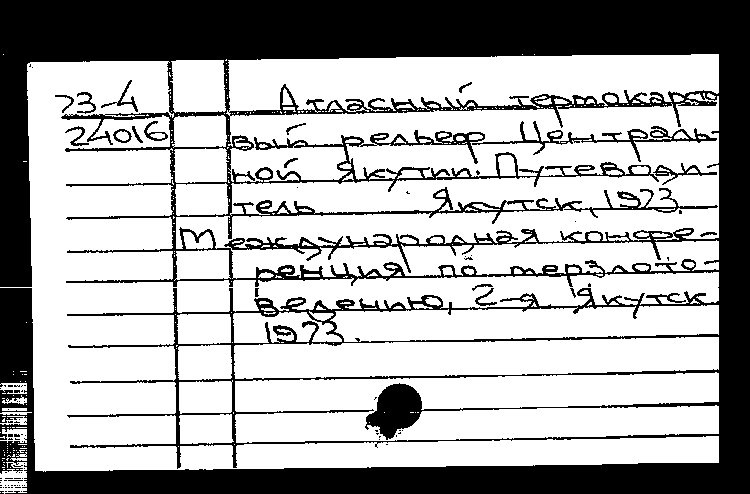 73-4
24016
Атласный термокарсто
вый рельеф Централь-
ной Якутии. Путеводи-
тель Якутск, 1973.
Международная конфе-
ренция по мерзлото-
ведению, 2-я Якутск
1973.